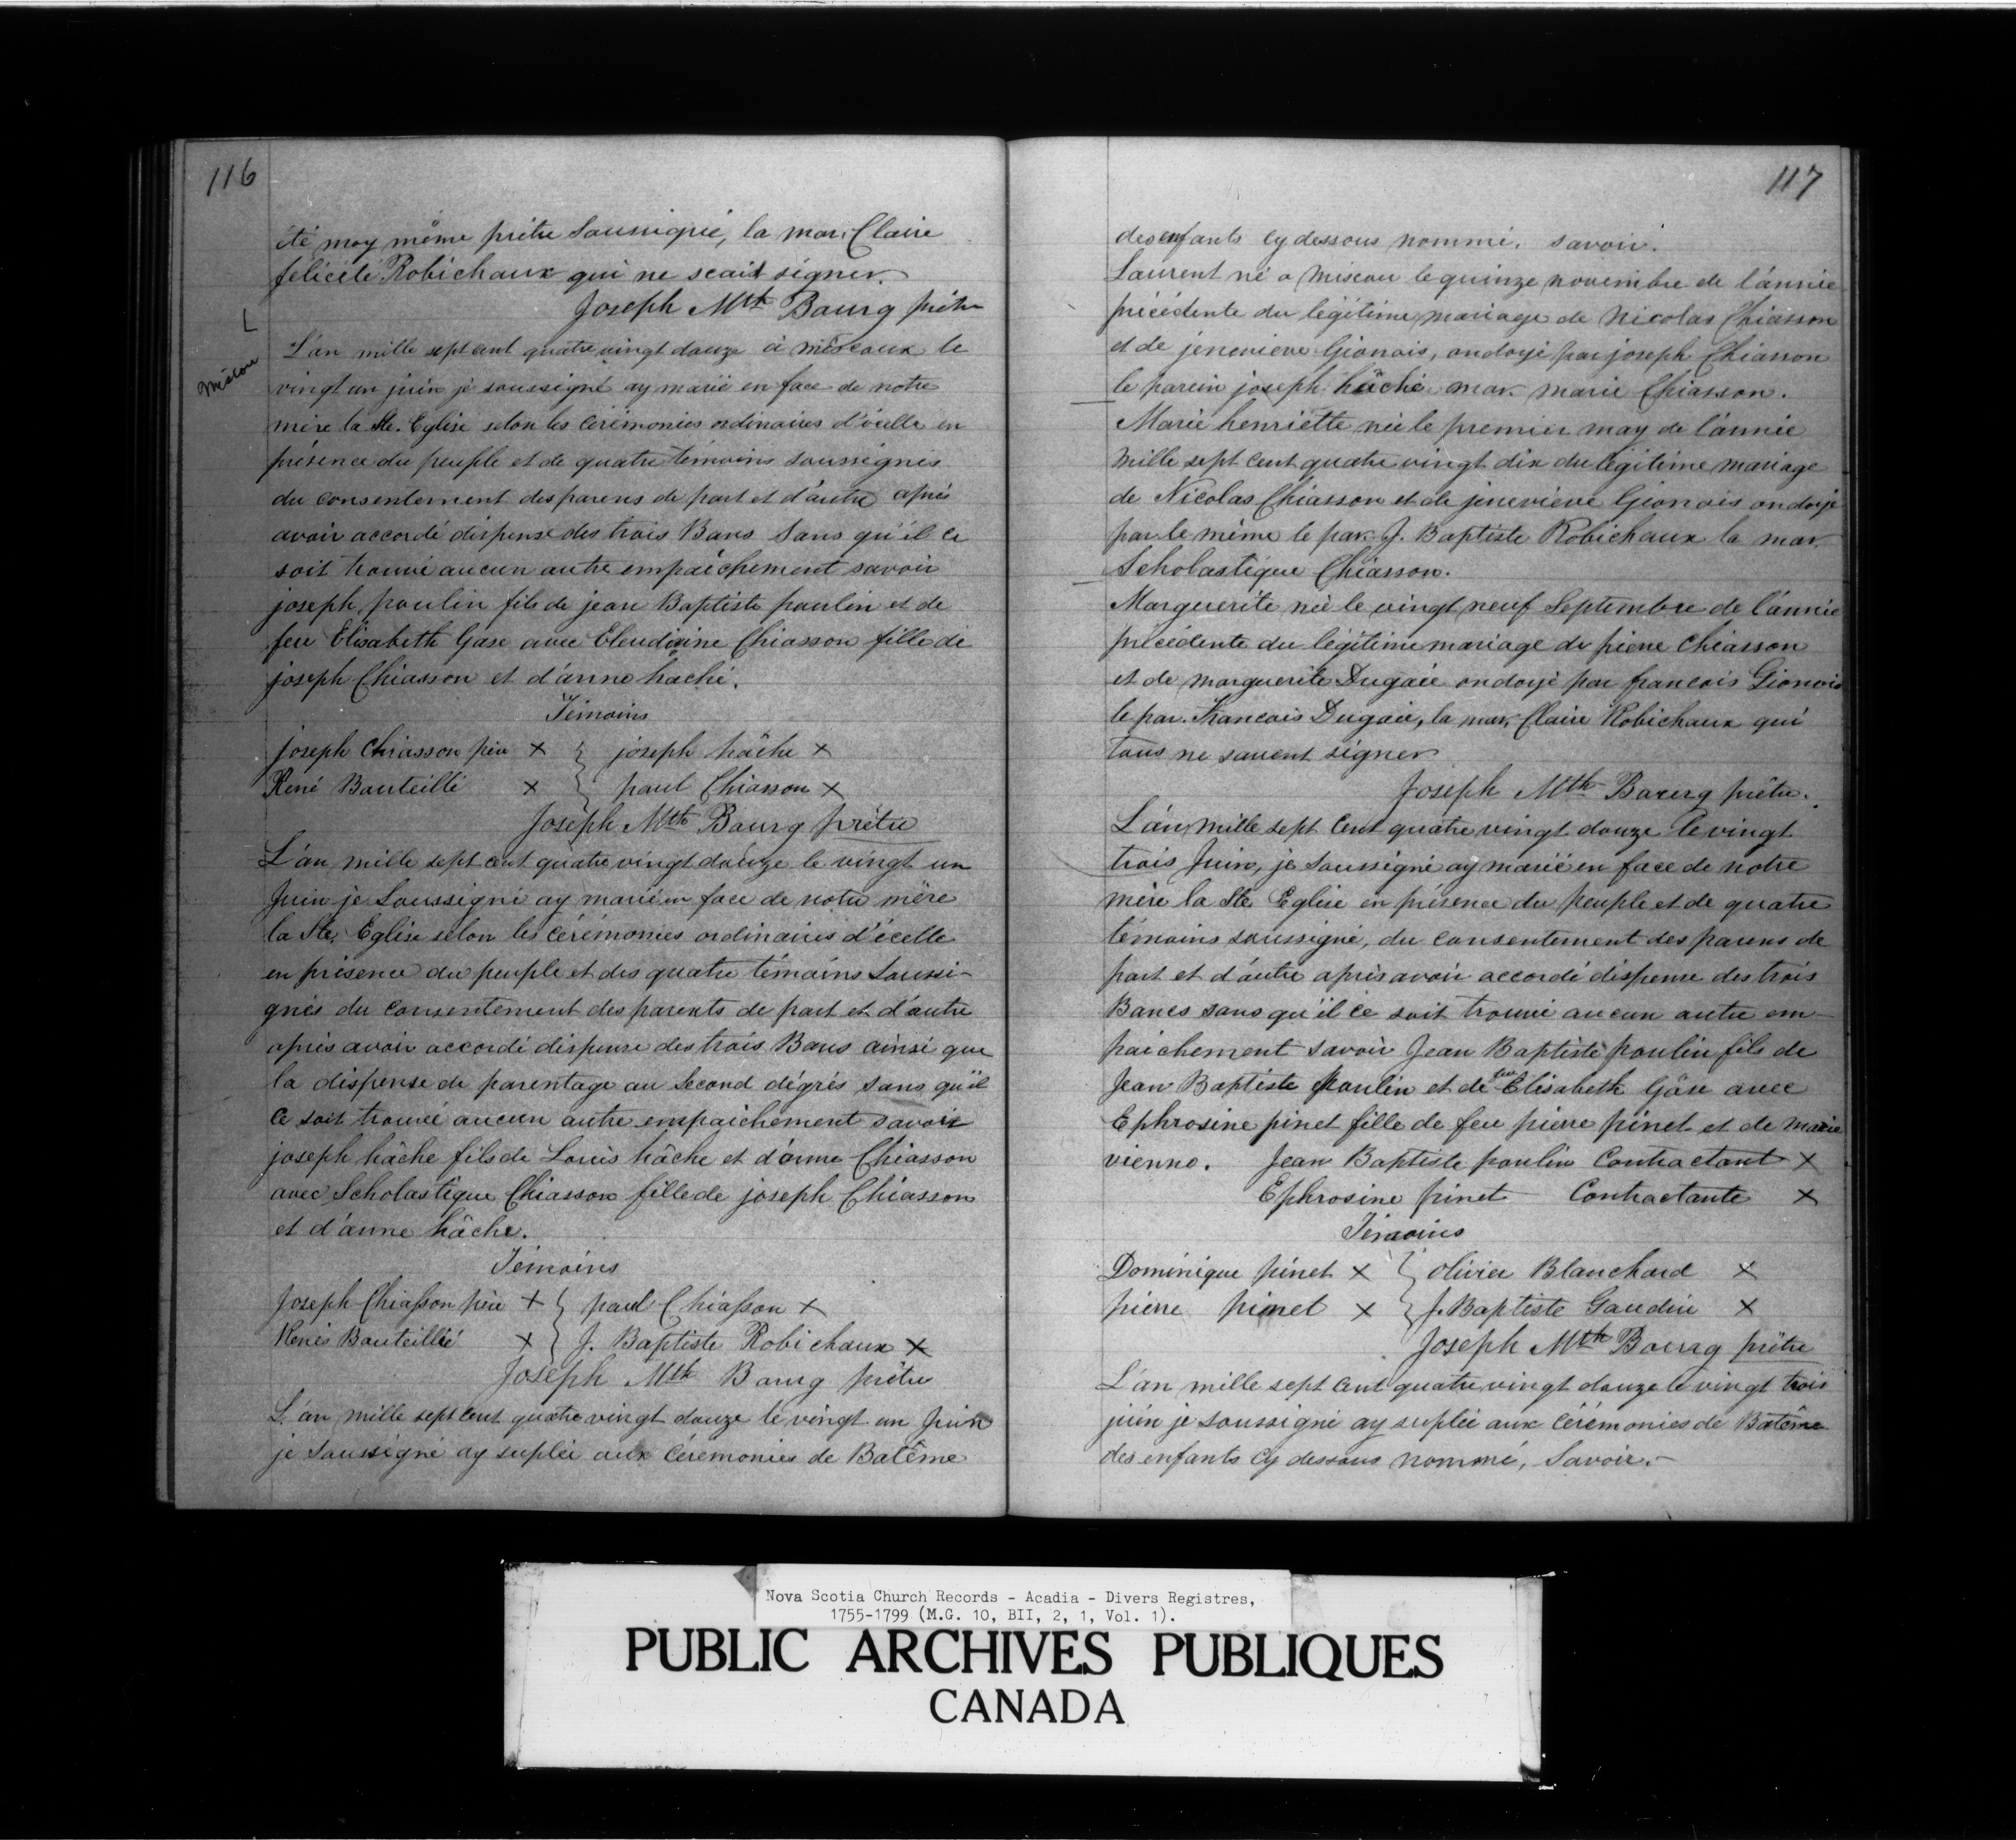 116
été moy même prêtre Soussigné, la mar. Claire
félicité Robichaux qui ne scait signer.
Joseph Mth Bourg prêtre
Miscou
L'an mille sept cent quatre vingt douze à miscoux le
vingt un juin je soussigné ay marié en face de notre
mère la Ste. Eglise selon les cérémonies ordinaires d'icelle en
présence du peuple et de quatre témoins soussignés
du consentement des parens de part et d'autre après
avoir accordé dispense des trois Bans Sans qu'il ce
soit trouvé aucun autre empaichement savoir
joseph paulin fils de jean Baptiste paulin et de
feu Elisabeth Gase avec Chiasson fille de
joseph Chiasson et d'anne haché.
Témoins
joseph Chiasson père X } joseph hâche X
René Bouteillé X } paul Chiasson X
Joseph Mth Bourg prêtre
L'an mille sept cent quatre vingt douze le vingt un
Juin je Soussigné ay marié en face de notre mère
la Ste. Eglise selon les cérémonies ordinaires d'icelle
en présence du peuple et des quatre témoins Soussi-
gnés du consentement des parents de part et d'autre
après avoir accordé dispense des trois Bans ainsi que
la dispense de parentage au Second dégrés sans qu'il
ce soit trouvé aucun autre empaichement savoir
joseph hâche fils de Louis hâche et d'anne Chiasson
avec Scholastique Chiasson fille de joseph Chiasson
et d'anne hâche.
Témoins
Joseph Chiasson père X } paul Chiasson X
Renés Bouteillié X } J. Baptiste Robichaux X
Joseph Mth Bourg prêtre
L'an mille sept cent quatre vingt douze le vingt un Juin
je Soussigné ay suplée aux Cérémonies de Batême
117
des enfants cy dessous nommé. savoir.
Laurent né a Miscou le quinze novembre de l'année
précédente du légitime mariage de Nicolas Chiasson
et de jenevieve Gionais, ondoyé par joseph Chiasson
le parein joseph hâché mar. marie Chiasson.
Marie henriette née le premier may de l'année
mille sept cent quatre vingt dix du légitime mariage
de Nicolas Chiasson et de jenevieve Gionais ondoyé
par le même le par. J. Baptiste Robichaux la mar.
Scholastique Chiasson.
Marguerite née le vingt neuf Septembre de l'année
précédente du légitime mariage de pierre Chiasson
et de marguerite Dugaie ondoyé par francois Gionais
le par. Francois Dugaie, la mar. Claire Robichaux qui
tous ne savent signer
Joseph Mth Bourg prêtre.
L'an mille sept Cent quatre vingt douze le vingt
trois Juin, je Soussigné ay marié en face de notre
mère la Ste Eglise en présence du peuple et de quatre
témoins soussigné, du consentement des parens de
part et d'autre après avoir accordé dispense des trois
Bancs sans qu'il ce soit trouvé aucun autre em-
paichement savoir Jean Baptiste paulin fils de
Jean Baptiste Paulin et de feu Elisabeth Gâse avec
Ephrosine pinet fille de feu pierre pinet et de marie
vienno. Jean Baptiste paulin Contractant X
Ephrosine pinet Contractante X
Témoins
Dominique pinet X } Olivier Blanchard X
pierre pinet X } J. Baptiste Gaudin X
Joseph Mth Bourg prêtre
L'an mille sept Cent quatre vingt douze le vingt trois
juin je soussigné ay suplée aux Cérémonies de Batême
des enfants cy dessous nommé, Savoir.-
Nova Scotia Church Records - Acadia - Divers Registres,
1755-1799 (M.G. 10, BII, 2, 1, Vol. 1).
PUBLIC ARCHIVES PUBLIQUES
CANADA